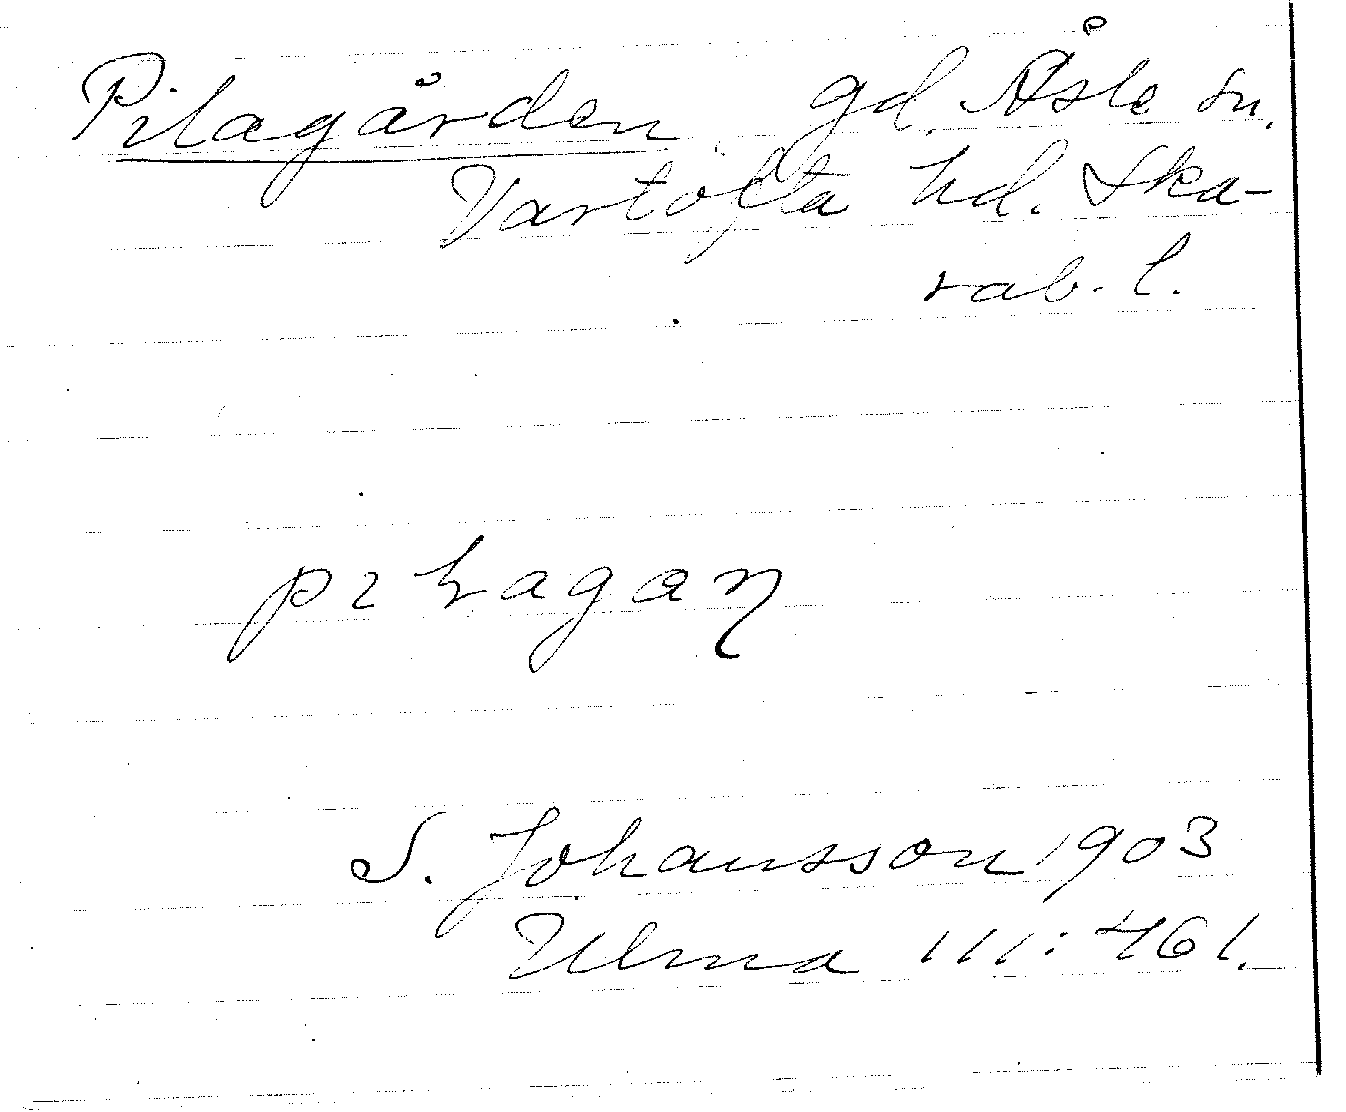 Pilagården gd. Åsle sn.
Vartofta hd. Ska-
rab. l.
S. Johansson 1903
Ulma 111:461.